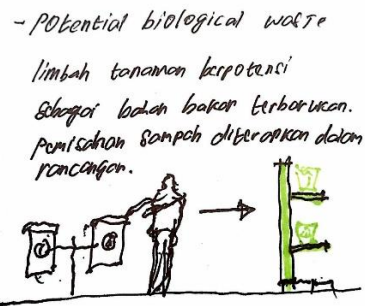 - Potential biological waste
limbah tanaman berpotensi
sebagai bahan bakar terbarukan.
pemisahan sampah diterapkan dalam
rancangan.